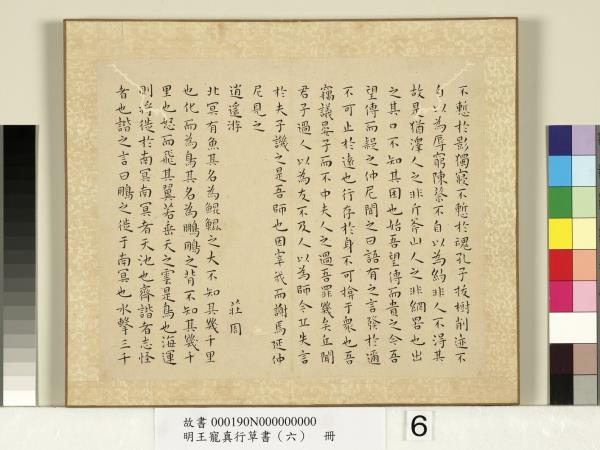 不慙於影獨寢不慙於魂孔子拔樹削迹不
自以為辱窮陳蔡不自以為約非人不得其
故是猶澤人之非斤斧山人之非網罟也出
之其口不知其困也始吾望傳而貴之今吾
望傳而疑之仲尼聞之曰語有之言發於邇
不可止於遠也行存於身不可掩於衆也吾
竊議晏子而不中夫人之過吾罪幾矣丘聞
君子過人以為友不及人以為師今丘失言
於夫子譏之是吾師也因宰我而謝焉延仲
尼見之
逍遙游 莊周
北冥有魚其名為鯤鯤之大不知其幾千里
也化而為鳥其名為鵬鵬之背不知其幾千
里也怒而飛其翼若垂天之雲是鳥也海運
則將徙於南冥南冥者天池也齊諧者志怪
者也諧之言曰鵬之徙于南冥也水擊三千
故書 000190N000000000
明王寵真行草書(六) 冊
6